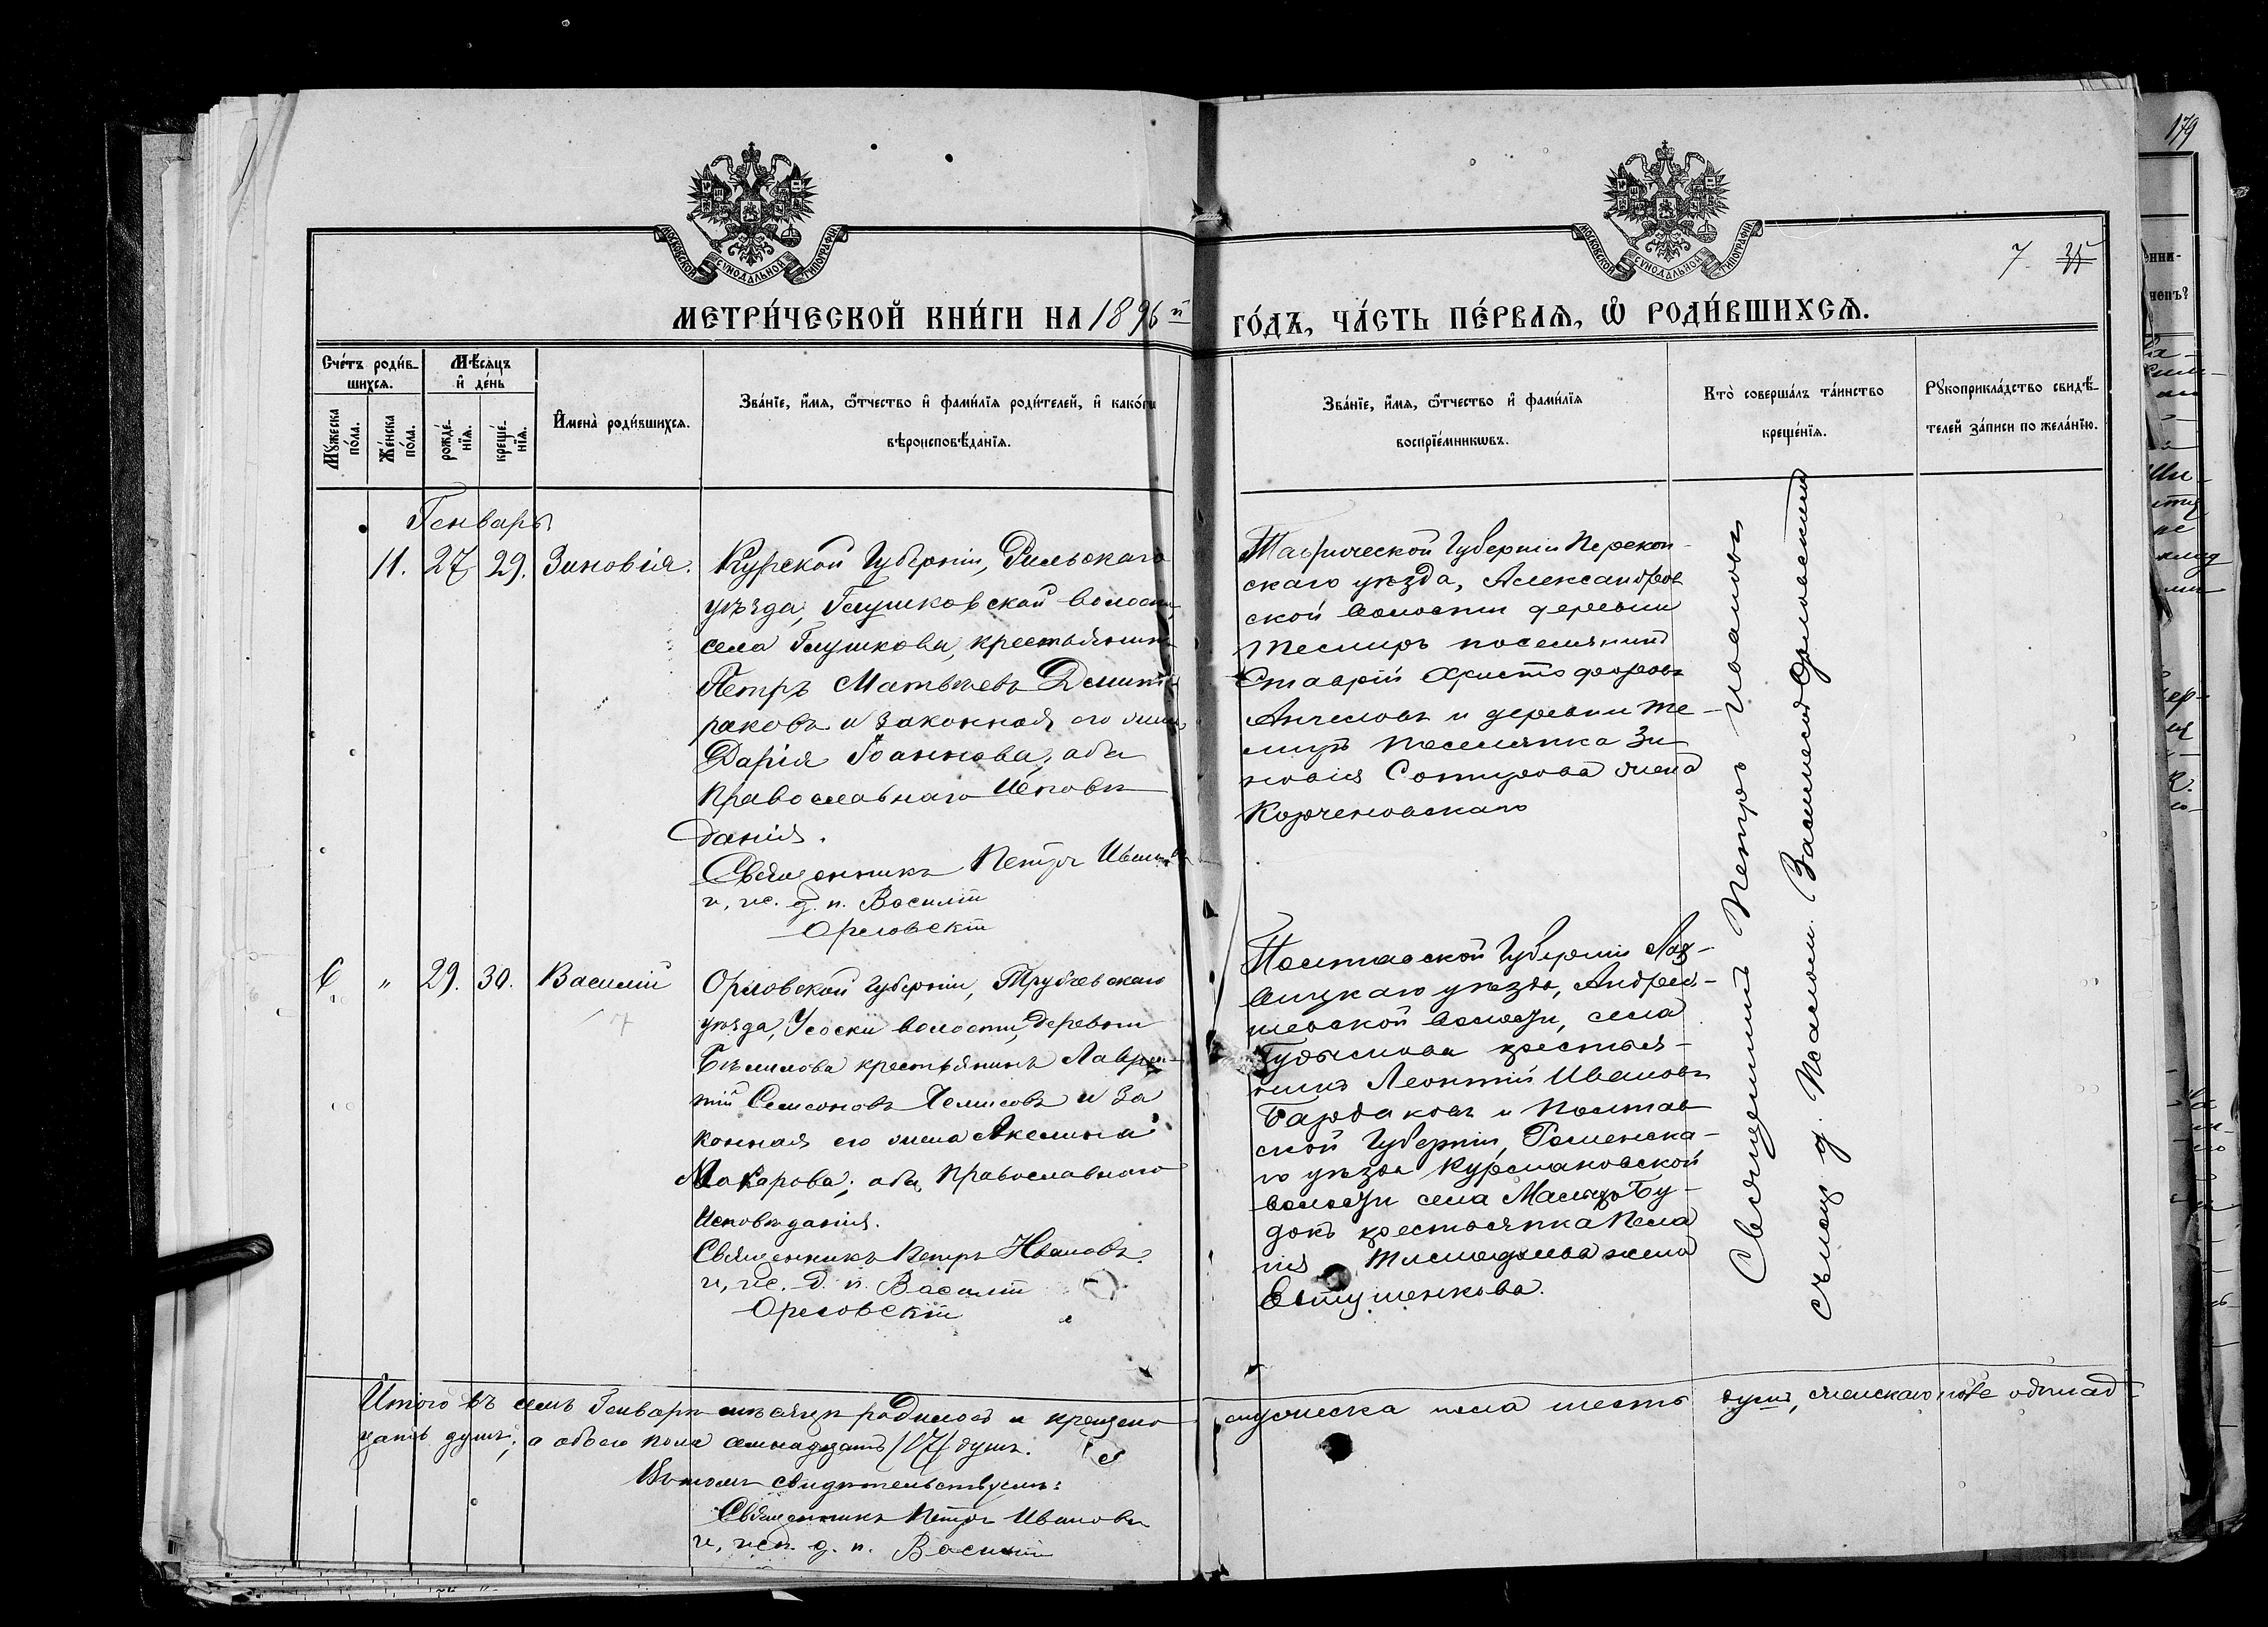 179
МОСКОВСКОЙ СѴНОДАЛЬНОЙ ТИПОГРАФІИ
МОСКОВСКОЙ СѴНОДАЛЬНОЙ ТИПОГРАФІИ
7. 35
МЕТРИ́ЧЕСКОЙ КНИ́ГИ НА 1896 й ГО́ДЪ, ЧА́СТЬ ПЕ́РВАѦ, Ѡ҆ РОДИ́ВШИХСѦ.
Сче́тъ роди́в-
шихсѧ.
Мѣ́сѧцъ
и҆ де́нь
Мꙋ́жеска
по́ла.
Же́нска
по́ла.
рожде́-
нїѧ.
креще́-
нїѧ.
И҆мена̀ роди́вшихсѧ.
Зва́нїе, и҆́мѧ, ѻ҆́тчество и҆ фами́лїѧ роди́телей, и҆ како́гѡ
вѣроисповѣ́данїѧ.
Зва́нїе, и҆́мѧ, ѻ҆́тчество и҆ фами́лїѧ
воспрїе́мникѡвъ.
Кто̀ соверша́лъ та́инство
креще́нїѧ.
Рꙋкоприкла́дство свидѣ́-
телей за́писи по жела́нїю.
Генварь
11. 27 29. Зиновія.
Курской Губерніи, Рыльскаго
уѣзда, Глушковской волости,
села Глушкова, крестьянинъ
Петръ Матвѣевъ Демит
раковъ и законная его жена
Дарія Іоаннова, оба
Православнаго Исповѣ
данія.
Священникъ Петръ Ивановъ
и, ис. д. п. Василій
Орловскій
Таврической Губерніи Перекоп-
скаго уѣзда, Александров
ской волости деревни
Темиръ поселянинъ
Ставрій Христофоровъ
Анчеловъ и деревни Те-
миръ поселянка Зи
новія Сотирова жена
Корченовскаго
6 " 29. 30. Василій
Орловской Губерніи, Трубчевскаго
уѣзда, Усоски волости, деревни
крестьянинъ Лаврен-
тій Семеоновъ и за
конная его жена Акелина
Макарова; оба Православнаго
Исповѣданія.
Священникъ Петръ Ивановъ.
и, ис. д. п. Василій
Орловскій
Полтавской Губерніи Лох-
вицкаго уѣзда, Андрея-
шевской волости, села
крестья-
нинъ Леонтій Ивановъ
Бардаковъ и Полтав
ской Губерніи, Роменска-
го уѣзда Курмановской
волости села Бу-
докъ крестьянка Пела
гія Тимофеева жена
Евтушенкова.
Священникъ Петръ Ивановъ
съ исп. д. Псалом. Василіемъ Орловскимъ
Итого въ семъ Генварѣ мѣсяцѣ родилось и крещено мужеска пола шесть душъ, женскаго пола одинад-
цать душъ, а обоего пола семнадцать /17/ душъ.
Въ томъ свидѣтельствуемъ:
Священникъ Петръ Ивановъ
и, исп. д. п. Василій